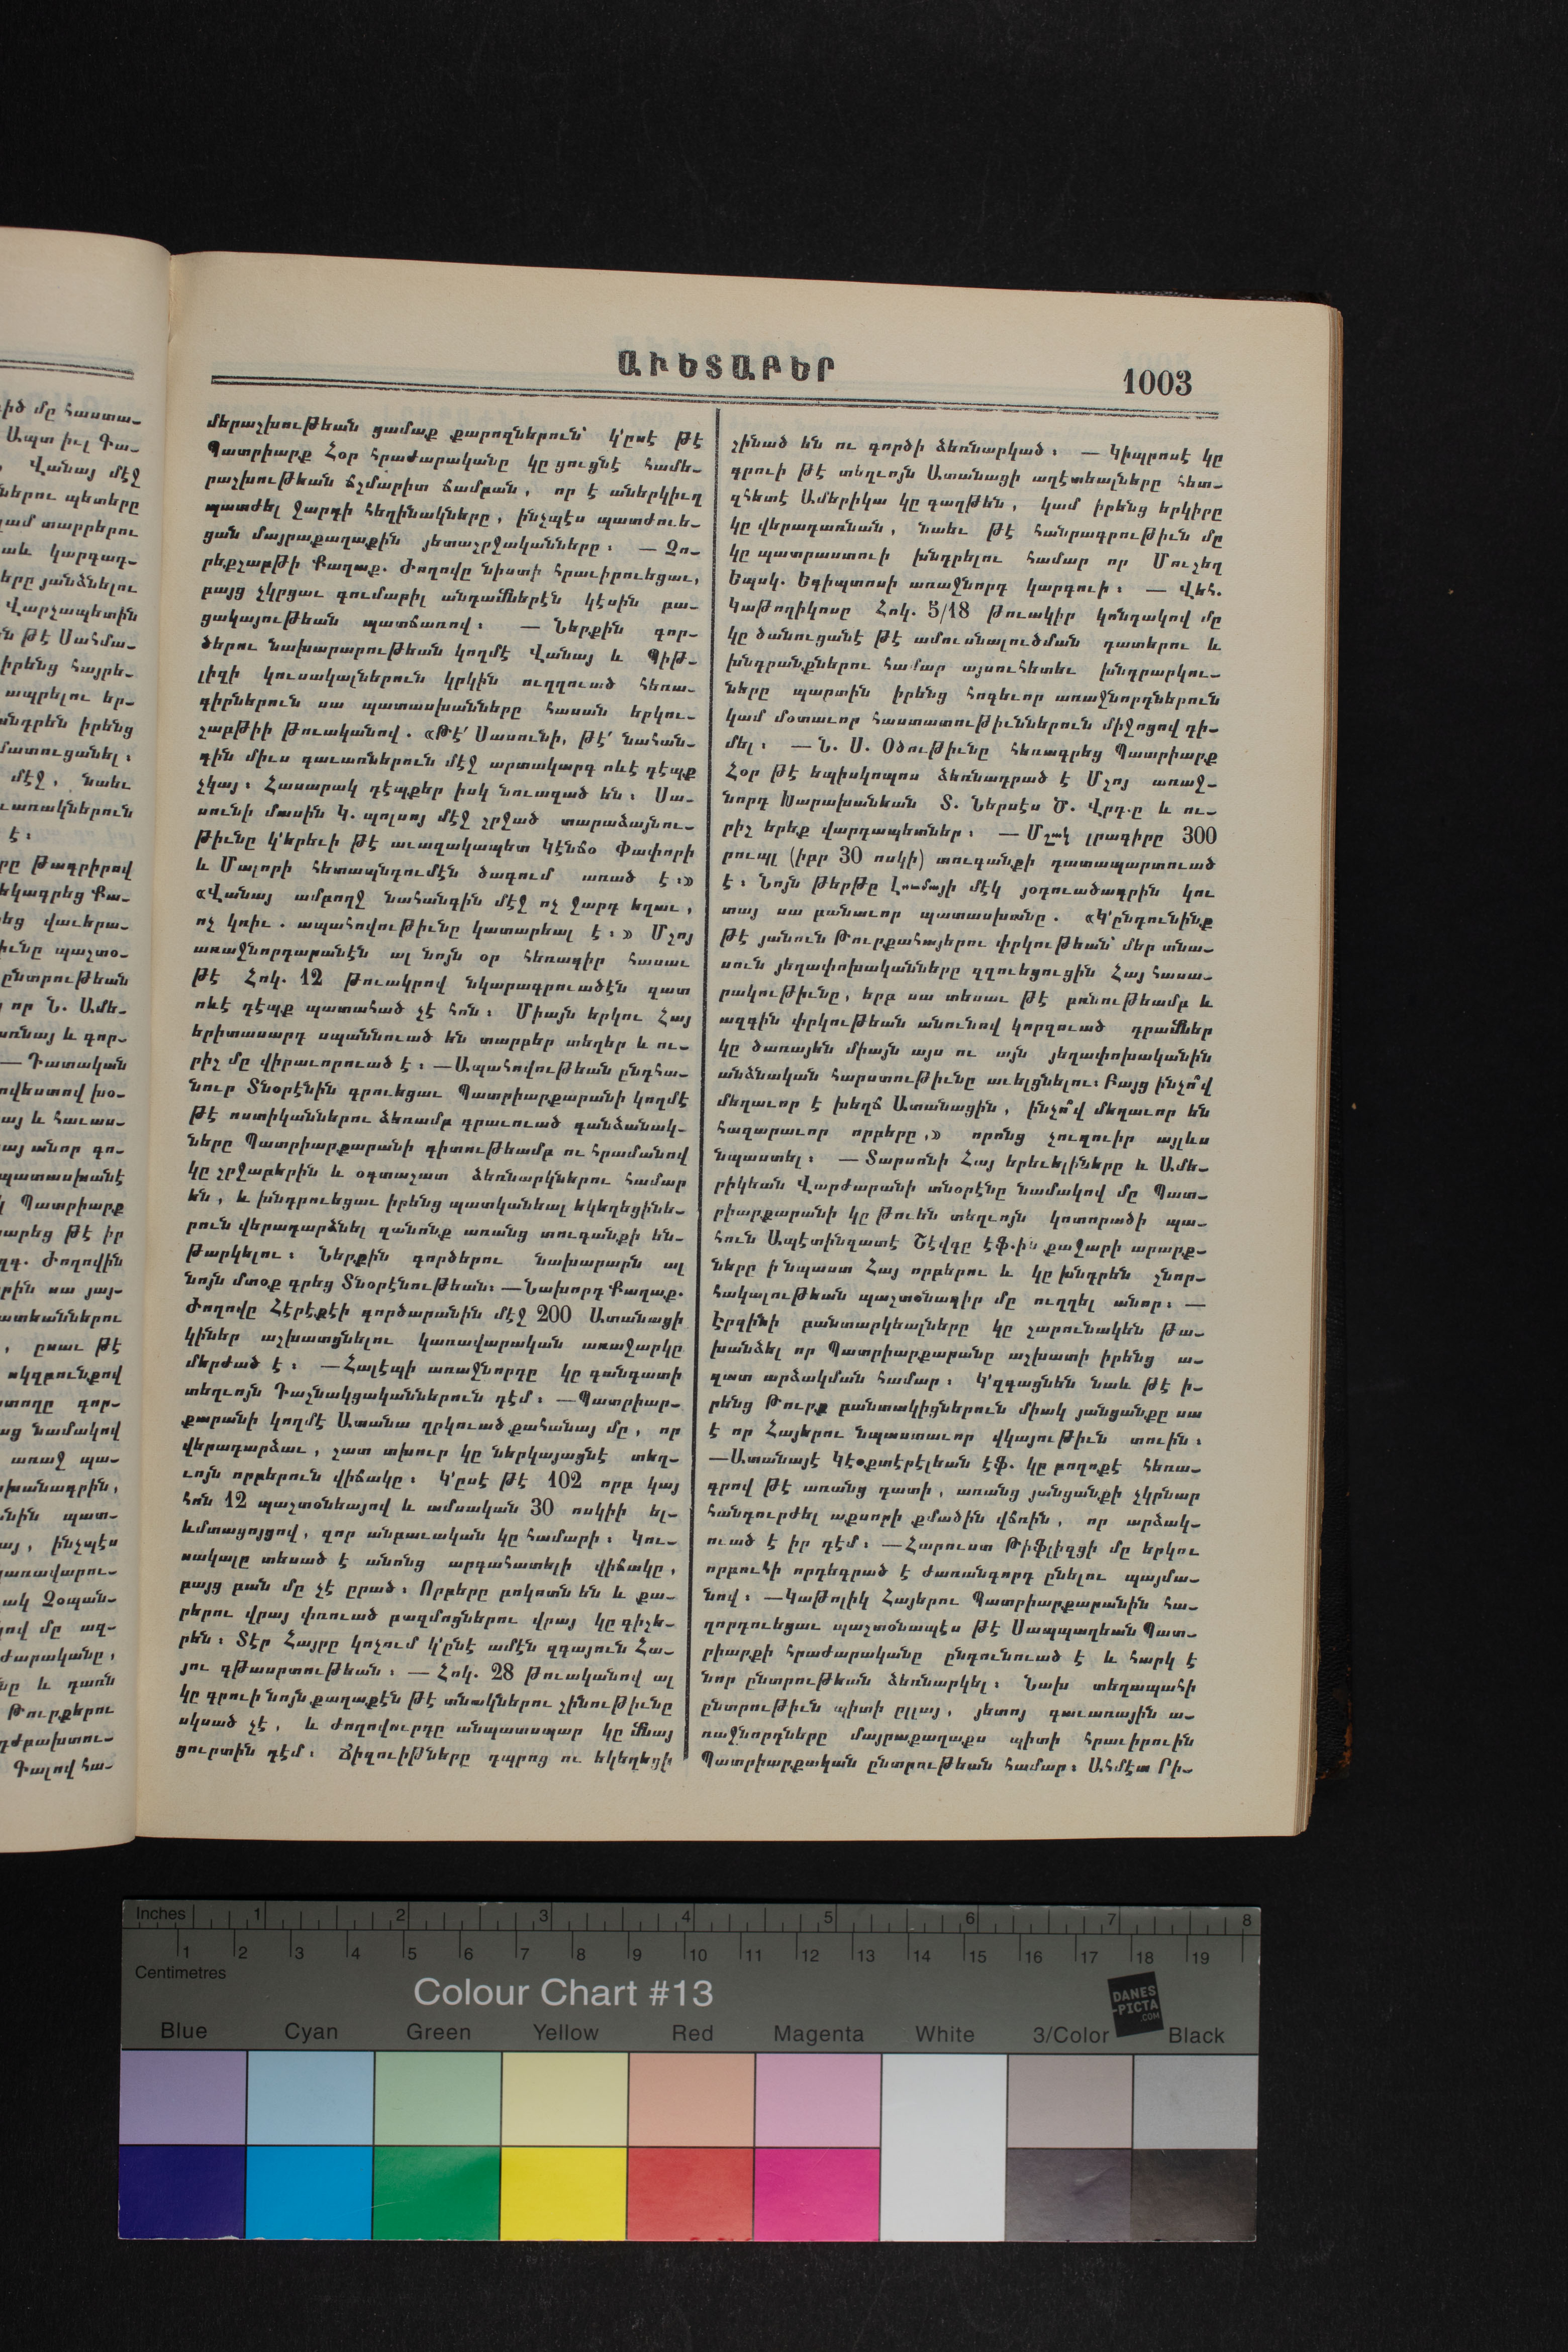 ԱՒԵՏԱԲԵՐ
1003
մերաշխութեան ցամաք քարոզներուն՝ կ'ըսէ թէ
Պատրիարք Հօր հրաժարականը կը ցուցնէ համե–
րաշխութեան ճշմարիտ ճամբան, որ է աներկիւղ
պատժել ջարդի հեղինակները, ինչպէս պատժուե–
ցան մայրաքաղաքին յետաշրջականները։ — Չո–
րեքշաբթի Քաղաք. Ժողովը նիստի հրաւիրուեցաւ,
բայց չկրցաւ գումարիլ անդամներէն կէսին բա–
ցակայութեան պատճառով։ — Ներքին գոր–
ծերու նախարարութեան կողմէ Վանայ և Պիթ–
լիզի կուսակալներուն կրկին ուղղուած հեռա–
գիրներուն սա պատասխանները հասան երկու–
շաբթիի թուականով. «Թէ՛ Սասունի, թէ՛ նահան–
գին միւս գաւառներուն մէջ արտակարգ ոևէ դէպք
չկայ։ Հասարակ դէպքեր իսկ նուազած են։ Սա–
սունի մասին Կ. պոլսոյ մէջ շրջած տարաձայնու–
թիւնը կ'երեւի թէ աւազակապետ Կէնճօ Փափորի
և Մալորի հետապնդումէն ծագում առած է։»
«Վանայ ամբողջ նահանգին մէջ ոչ ջարդ եղաւ,
ոչ կռիւ. ապահովութիւնը կատարեալ է։» Մշոյ
առաջնորդարանէն ալ նոյն օր հեռագիր հասաւ
թէ Հոկ. 12 թուակրով նկարագրուածէն զատ
ոևէ դէպք պատահած չէ հոն։ Միայն երկու Հայ
երիտասարդ սպաննուած են տարբեր տեղեր և ու–
րիշ մը վիրաւորուած է։ —Ապահովութեան ընդհա–
նուր Տնօրէնին գրուեցաւ Պատրիարքարանի կողմէ
թէ ոստիկաններու ձեռամբ գրաւուած գանձանակ–
ները Պատրիարքարանի գիտութեամբ ու հրամանով
կը շրջաբերին և օգտաշատ ձեռնարկներու համար
են, և խնդրուեցաւ իրենց պատկանեալ եկեղեցինե–
րուն վերադարձնել զանոնք առանց տուգանքի են–
թարկելու։ Ներքին գործերու նախարարն ալ
նոյն մտօք գրեց Տնօրէնութեան։ —Նախորդ Քաղաք.
Ժողովը Հէրէքէի գործարանին մէջ 200 Ատանացի
կիներ աշխատցնելու կառավարական առաջարկը
մերժած է։ —Հալէպի առաջնորդը կը գանգատի
տեղւոյն Դաշնակցականներուն դէմ։ —Պատրիար–
քարանի կողմէ Ատանա ղրկուած քահանայ մը, որ
վերադարձաւ, շատ տխուր կը ներկայացնէ տեղ–
ւոյն որբերուն վիճակը։ Կ'ըսէ թէ 102 որբ կայ
հոն 12 պաշտօնեայով և ամսական 30 ոսկիի ել–
ևմտացոյցով, զոր անբաւական կը համարի։ Կու–
սակալը տեսած է անոնց արգահատելի վիճակը,
բայց բան մը չէ ըրած։ Որբերը բոկոտն են և քա–
րերու վրայ փռուած բազմոցներու վրայ կը գիշե–
րեն։ Տէր Հայրը կոչում կ'ընէ ամէն զգայուն Հա–
յու գթասրտութեան։ — Հոկ. 28 թուականով ալ
կը գրուի նոյն քաղաքէն թէ տնակներու շինութիւնը
սկսած չէ, և ժողովուրդը անպատսպար կը մնայ
ցուրտին դէմ։ Ճիզուիթները դպրոց ու եկեղեցի
շինած են ու գործի ձեռնարկած։ — Կիպրոսէ կը
գրուի թէ տեղւոյն Ատանացի աղէտեալները հետ–
զհետէ Ամերիկա կը գաղթեն, կամ իրենց երկիրը
կը վերադառնան, նաեւ թէ հանրագրութիւն մը
կը պատրաստուի խնդրելու համար որ Մուշեղ
Եպսկ. Եգիպտոսի առաջնորդ կարգուի։ — Վեհ.
Կաթողիկոսը Հոկ. 5/18 թուակիր կոնդակով մը
կը ծանուցանէ թէ ամուսնալուծման դատերու և
խնդրանքներու համար այսուհետեւ խնդրարկու–
ները պարտին իրենց հոգեւոր առաջնորդներուն
կամ մօտաւոր հաստատութիւններուն միջոցով դի–
մել։ —Ն. Ս. Օծութիւնը հեռագրեց Պատրիարք
Հօր թէ եպիսկոպոս ձեռնադրած է Մշոյ առաջ–
նորդ Խարախանեան Տ. Ներսէս Ծ. Վրդ.ը և ու–
րիշ երեք վարդապետներ։ —Մշակ լրագիրը 300
րուպլ (իբր 30 ոսկի) տուգանքի դատապարտուած
է։ Նոյն թերթը Լուսմայի մէկ յօդուածագրին կու
տայ սա բանաւոր պատասխանը. «Կ'ընդունինք
թէ յանուն Թուրքահայերու փրկութեան՝ մեր տնա–
սուն յեղափոխականները զզուեցուցին Հայ հասա–
րակութիւնը, երբ սա տեսաւ թէ բռնութեամբ և
ազգին փրկութեան անունով կորզուած դրամներ
կը ծառայեն միայն այս ու այն յեղափոխականին
անձնական հարստութիւնը աւելցնելու։ Բայց ինչո՞վ
մեղաւոր է խեղճ Ատանացին, ինչո՞վ մեղաւոր են
հազարաւոր որբերը,» որոնց չուզուիր այլևս
նպաստել։ — Տարսոնի Հայ երեւելիները և Ամե–
րիկեան Վարժարանի տնօրէնը նամակով մը Պատ–
րիարքարանի կը թուեն տեղւոյն կոտորածի պա–
հուն Ապէտինզատէ Շէվգը էֆ.ին քաջարի արարք–
ները ի նպաստ Հայ որբերու և կը խնդրեն շնոր–
հակալութեան պաշտօնագիր մը ուղղել անոր։ —
Էրզինի բանտարկեալները կը շարունակեն թա–
խանձել որ Պատրիարքարանը աշխատի իրենց ա–
զատ արձակման համար։ Կ'զգացնեն նաև թէ ի–
րենց Թուրք բանտակիցներուն միակ յանցանքը սա
է որ Հայերու նպաստաւոր վկայութիւն տուին։
—Ատանայէ Կէօքտէրէլեան էֆ. կը բողոքէ հեռա–
գրով թէ առանց դատի, առանց յանցանքի չկրնար
հանդուրժել աքսորի քմածին վճռին, որ արձակ–
ուած է իր դէմ։ —Հարուստ Թիֆլիզցի մը երկու
որբուհի որդեգրած է ժառանգորդ ընելու պայմա–
նով։ —Կաթոլիկ Հայերու Պատրիարքարանին հա–
ղորդուեցաւ պաշտօնապէս թէ Սապպաղեան Պատ–
րիարքի հրաժարականը ընդունուած է և հարկ է
նոր ընտրութեան ձեռնարկել։ Նախ տեղապահի
ընտրութիւն պիտի ըլլայ, յետոյ գաւառային ա–
ռաջնորդները մայրաքաղաքս պիտի հրաւիրուին
Պատրիարքական ընտրութեան համար։ Ահմէտ Րի–
Inches 1 2 3 4 5 6 7 8
1 2 3 4 5 6 7 8 9 10 11 12 13 14 15 16 17 18 19
Centimetres
Colour Chart #13
DANES
-PICTA
.COM
Blue Cyan Green Yellow Red Magenta White 3/Color Black